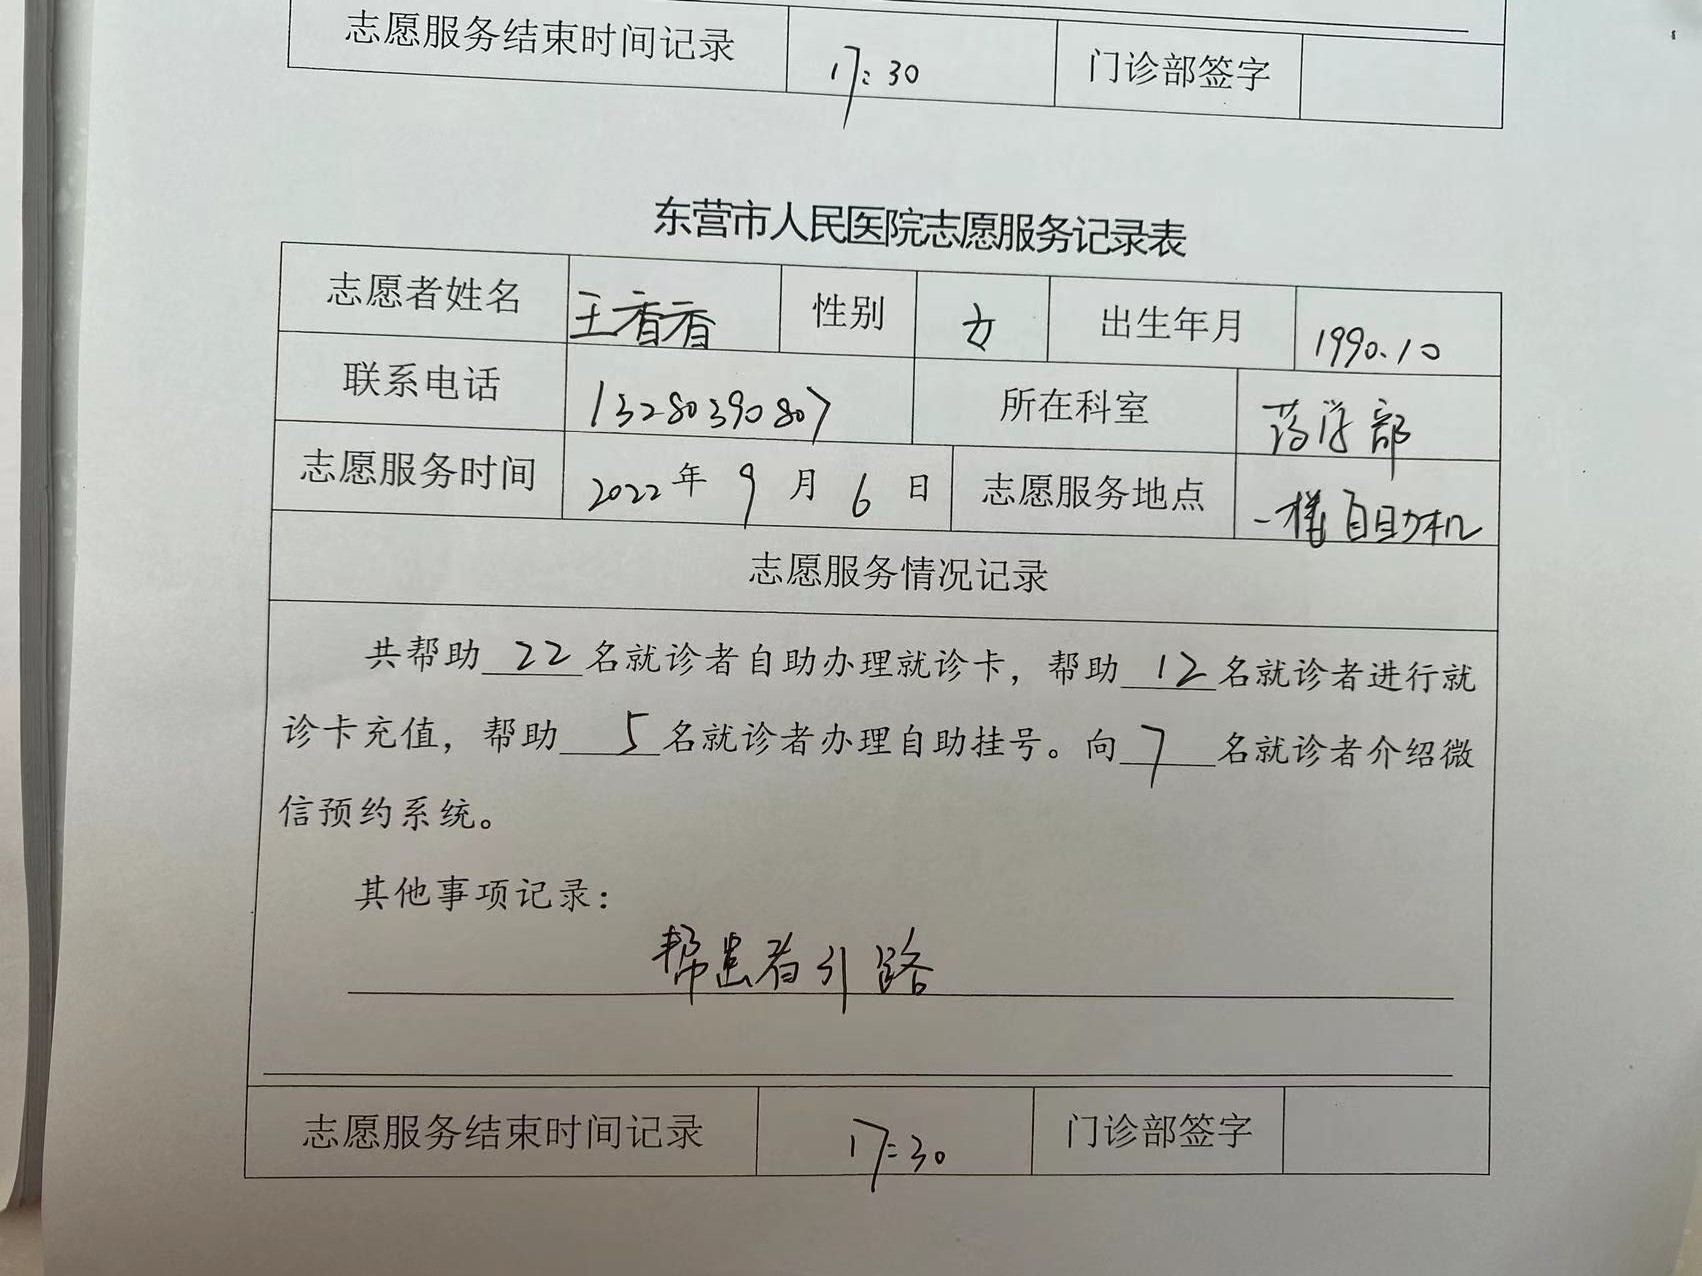 志愿服务结束时间记录 17:30 门诊部签字
东营市人民医院志愿服务记录表
志愿者姓名 王香香 性别 女 出生年月 1990.10
联系电话 13280390807 所在科室 药学部
志愿服务时间 2022年9月6日 志愿服务地点 一楼自助机
志愿服务情况记录
共帮助22名就诊者自助办理就诊卡，帮助12名就诊者进行就
诊卡充值，帮助5名就诊者办理自助挂号。向7名就诊者介绍微
信预约系统。
其他事项记录：
帮患者引路
志愿服务结束时间记录 17:30 门诊部签字